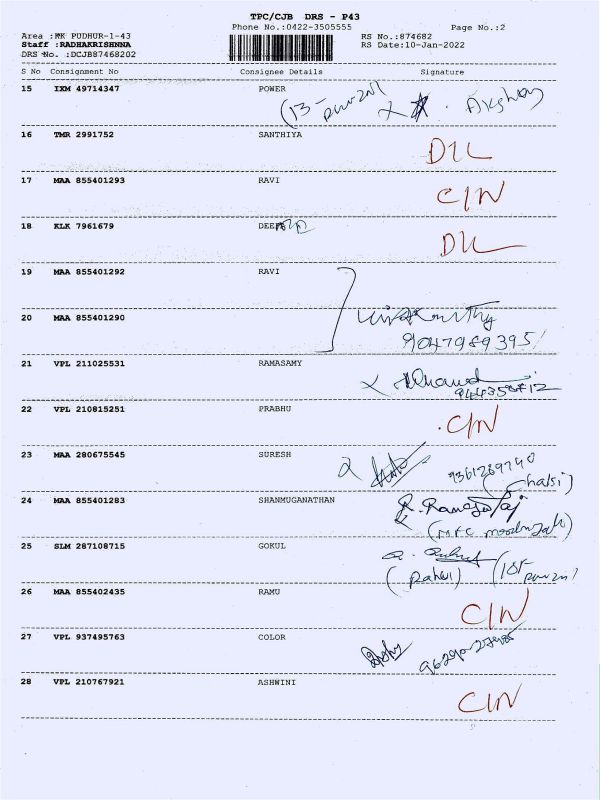 TPC/CJB DRS - P43
Phone No.:0422-3505555 Page No.:2
Area :KK PUDHUR-1-43 RS No.:874682
Staff :RADHAKRISHNNA RS Date:10-Jan-2022
DRS No. :DCJB87468202
S No Consignment No Consignee Details Signature
15 IXM 49714347 POWER
(13-
16 TMR 2991752 SANTHIYA
DIL
17 MAA 855401293 RAVI
CIN
18 KLK 7961679
DIL
19 MAA 855401292 RAVI
20 MAA 855401290
9047989395
21 VPL 211025531 RAMASAMY
22 VPL 210815251 PRABHU
CIN
23 MAA 280675545 SURESH
9361289740
24 MAA 855401283 SHANMUGANATHAN
25 SLM 287108715 GOKUL
26 MAA 855402435 RAMU
CIN
27 VPL 937495763 COLOR
28 VPL 210767921 ASHWINI
CIN